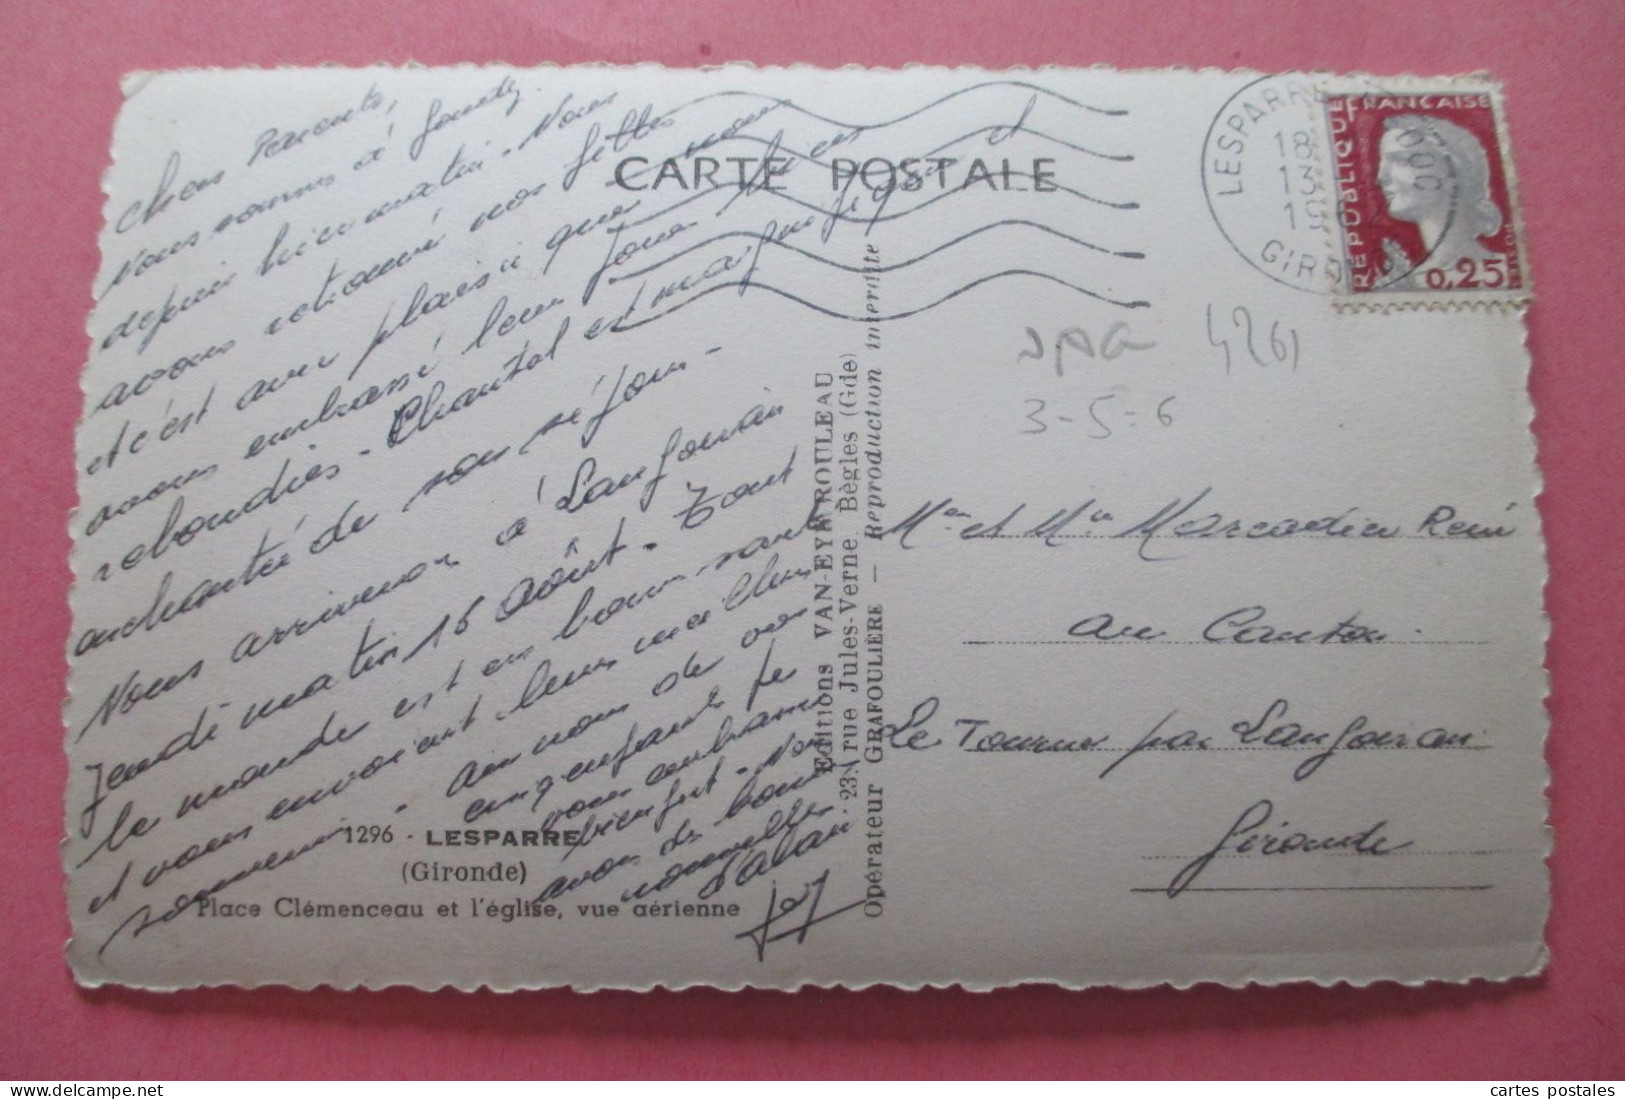 Chers Parents,
Nous sommes à
depuis hier matin. Nous
avons retrouvé nos fillettes
et c'est avec plaisir que nous
avons embrassé leurs joues bien
rebondies. Chantal est magnifique et
enchantée de son séjour -
Nous arriverons à Langoiran
Jeudi matin 16 Août. Tout
le monde est en bonne santé
et vous envoient leurs meilleurs
souvenirs.
vous embrassons
bientôt. Nous
avons de bonnes
nouvelles
CARTE POSTALE
Editions VAN-EYK-ROULEAU
23, rue Jules-Verne. Bègles (Gde)
Opérateur GRAFOULIÈRE — Reproduction interdite
LESPARRE
18
13
19
GIRONDE
REPUBLIQUE FRANÇAISE
0,25
4261
3-5-6
Mr et Mme Marcadier René
au Canton
Le Tourne par Langoiran
Gironde
1296 - LESPARRE
(Gironde)
Place Clémenceau et l'église, vue aérienne
cartes postales